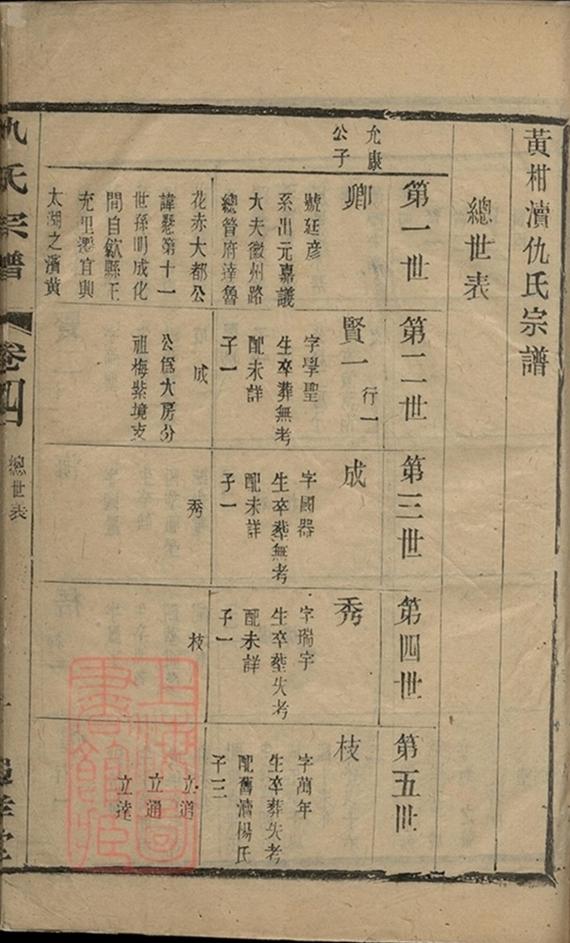 黃柑瀆仇氏宗譜
總世表
第一世
第二世
第三世
第四世
第五世
允康
公子
卿
號廷彦
系出元嘉議
大夫徽州路
總管府達魯
花赤大都公
諱懸第十一
世孫明成化
間自歙縣王
充里遷宜興
太湖之濱黃
賢一
行一
字學聖
生卒葬無考
配未詳
子一
成
公爲大房分
祖梅紫境支
成
字國器
生卒葬無考
配未詳
子一
秀
秀
字瑞宇
生卒塟失考
配未詳
子一
枝
枝
字萬年
生卒葬失考
配舊瀆楊氏
子三
立道
立通
立達
仇氏宗譜
卷四
總世表
上海圖書館藏